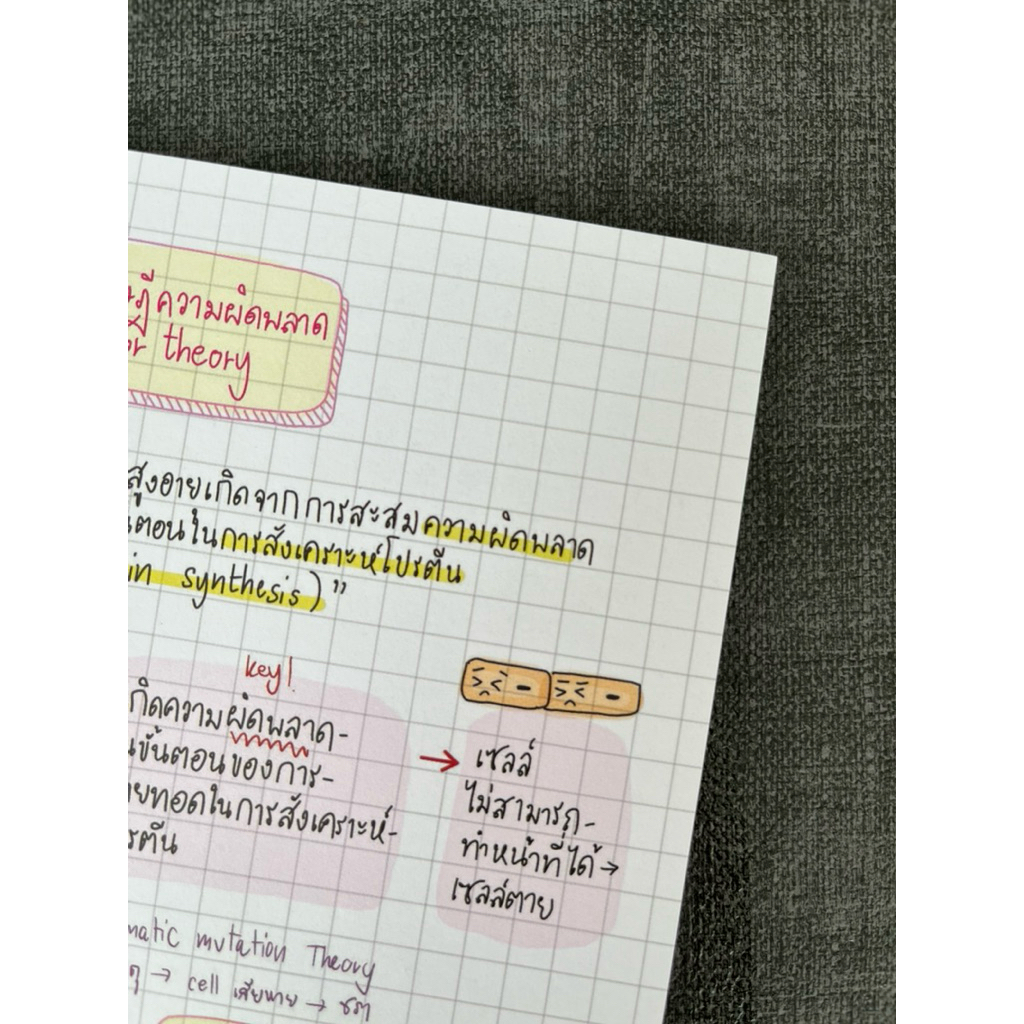 ฎีความผิดพลาด
or theory
สูงอายุเกิดจากการสะสมความผิดพลาด
นตอนในการสังเคราะห์โปรตีน
in synthesis)"
key!
กิดความผิดพลาด-
นขั้นตอนของการ-
ายทอดในการสังเคราะห์-
รตีน
→ เซลล์
ไม่สามารถ-
ทำหน้าที่ได้→
เซลล์ตาย
matic mutation Theory
→ cell เสียหาย → ชรา